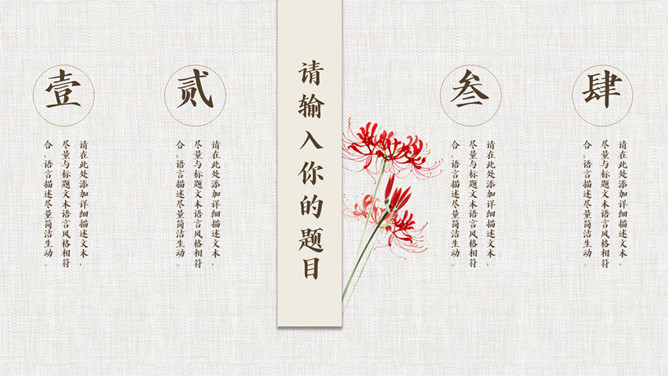 壹
请在此处添加详细描述文本，
尽量与标题文本语言风格相符
合，语言描述尽量简洁生动。
贰
请在此处添加详细描述文本，
尽量与标题文本语言风格相符
合，语言描述尽量简洁生动。
请输入你的题目
叁
请在此处添加详细描述文本，
尽量与标题文本语言风格相符
合，语言描述尽量简洁生动。
肆
请在此处添加详细描述文本，
尽量与标题文本语言风格相符
合，语言描述尽量简洁生动。